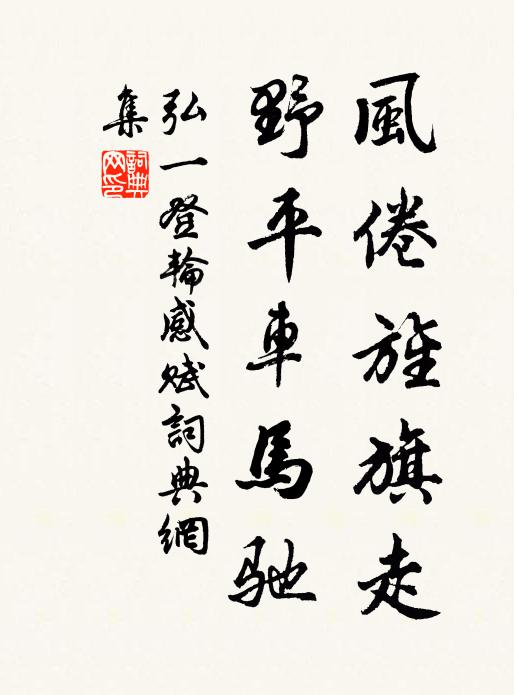 風倦旌旗走
野平車馬馳
弘一登輪感賦詞典網
集
詞典
网印